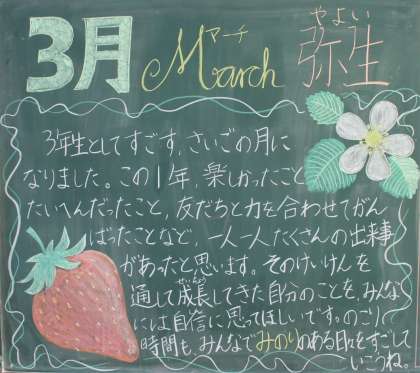 3月 March 弥生
マーチ やよい
3年生としてすごす、さいごの月に
なりました。この1年、楽しかったこと
たいへんだったこと、友だちと力を合わせてがん
ばったことなど、一人一人たくさんの出来事
があったと思います。そのけいけんを
通して成長してきた自分のことを、みんな
せいちょう
には自信に思ってほしいです。のこり
時間も、みんなでみのりのある日々をすごして
いこうね。